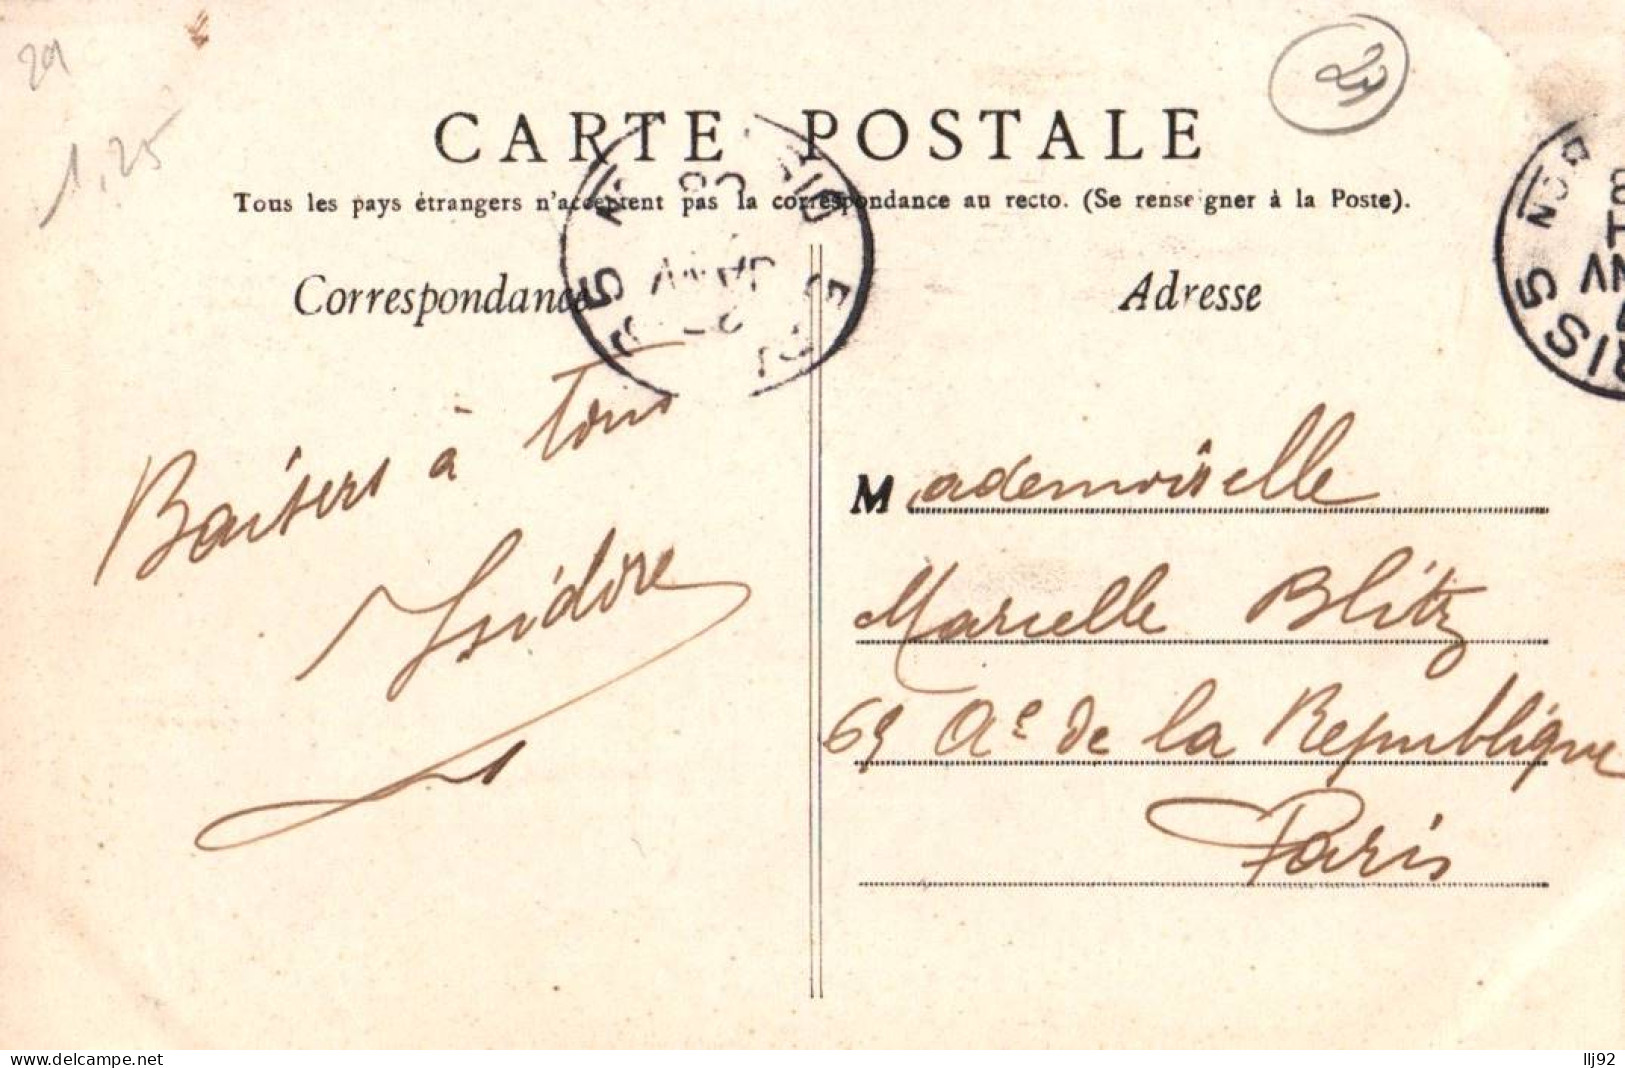 29
1,25
CARTE POSTALE
Tous les pays étrangers n'acceptent pas la correspondance au recto. (Se renseigner à la Poste).
Correspondance
Adresse
Baisers à Tous
Isidore
Mademoiselle
Marcelle Blitz
69 Ae de la Republique
Paris
www.delcampe.net
llj92